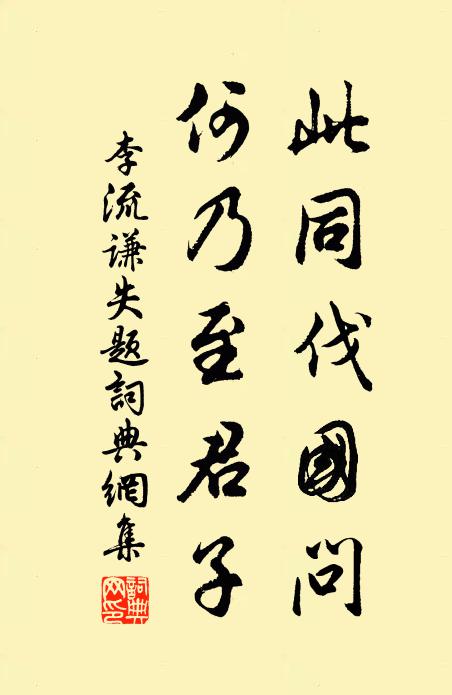 此同伐國問
何乃至君子
李流謙失題詞典網集
詞典
网印